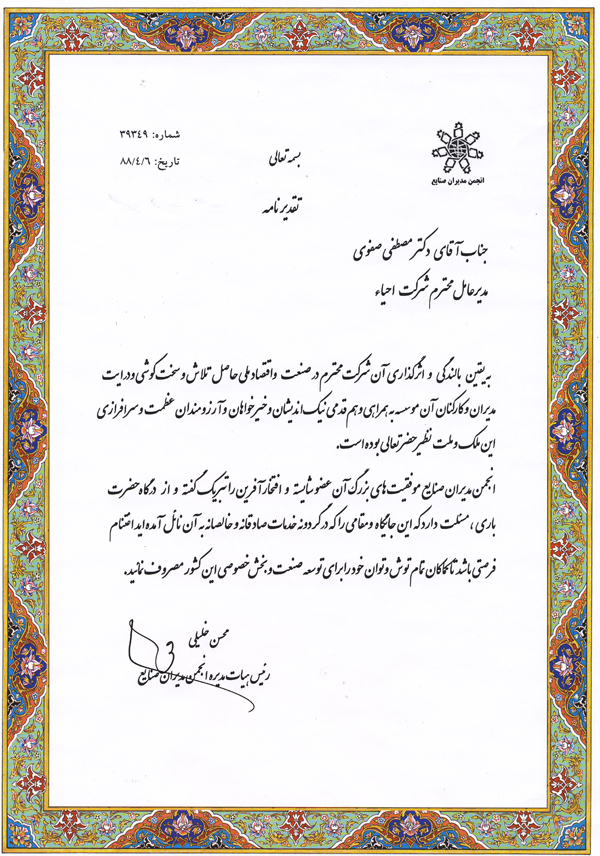 شماره: ۳۹۳۴۹
تاریخ: ۸۸/۴/۶
بسمه تعالی
انجمن مدیران صنایع
تقدیر نامه
جناب آقای دکتر مصطفی صفوی
مدیرعامل محترم شرکت احیاء
به یقین بالندگی و اثرگذاری آن شرکت محترم در صنعت و اقتصاد ملی حاصل تلاش و سخت کوشی و درایت
مدیران و کارکنان آن موسسه به همراهی و هم قدمی نیک اندیشان و خیرخواهان و آرزومندان عظمت و سرافرازی
این ملک و ملت نظیر حضرتعالی بوده است.
انجمن مدیران صنایع موفقیت های بزرگ آن عضو شایسته و افتخارآفرین را تبریک گفته و از درگاه حضرت
باری، مسئلت دارد که این جایگاه و مقامی را که در گردونه خدمات صادقانه و خالصانه به آن نائل آمده اید اغتنام
فرصتی باشد تا کماکان تمام توش و توان خود را برای توسعه صنعت و بخش خصوصی این کشور مصروف نمائید.
محسن خلیلی
رئیس هیات مدیره انجمن مدیران صنایع